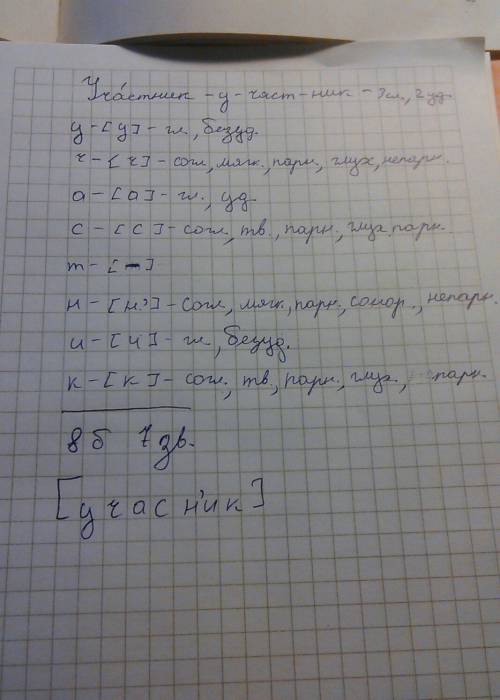 Уча́стник - у - част - ник - 3сл., 2 уд.
у - [у] - гл., безуд.
ч - [ч] - согл, мягк., парн., глух, непарн.
а - [а] - гл., уд
с - [с] - согл., тв., парн., глух. парн.
т - [-]
н - [н'] - согл., мягк., парн., сонор., непарн.
и - [и] - гл., безуд.
к - [к] - согл., тв., парн., глух., парн.
8 б 7 зв.
[учасн'ик]